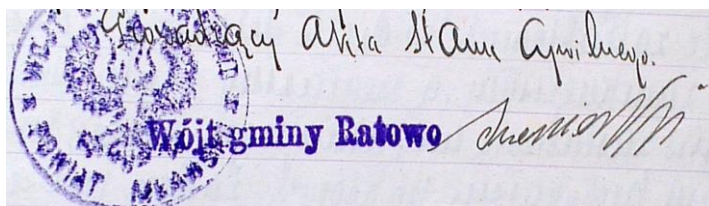 Prowadzący Akta Stanu Cywilnego.
Wójt gminy Ratowo
POWIAT MŁAWSKI